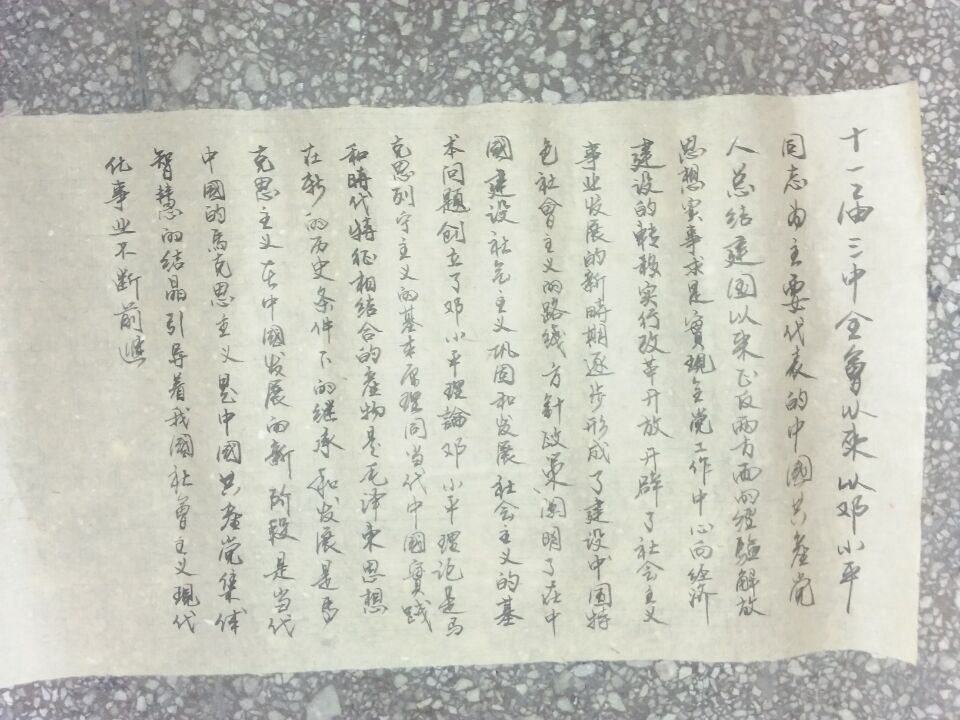 十一届三中全會以來以邓小平
同志为主要代表的中國共産党
人总结建国以来正反两方面的经验解放
思想实事求是實現全党工作中心向经济
建设的转移实行改革开放开辟了社会主义
事业发展的新時期逐步形成了建设中国特
色社會主义的路线方针政策阐明了在中
國建设社会主义巩固和发展社会主义的基
本问题创立了邓小平理論邓小平理论是马
克思列宁主义的基本原理同当代中國實践
和時代特征相结合的産物是毛泽東思想
在新的历史条件下的继承和发展是馬
克思主义在中國发展的新阶段是当代
中國的馬克思主义是中國共産党集体
智慧的结晶引导着我國社會主义現代
化事业不断前進